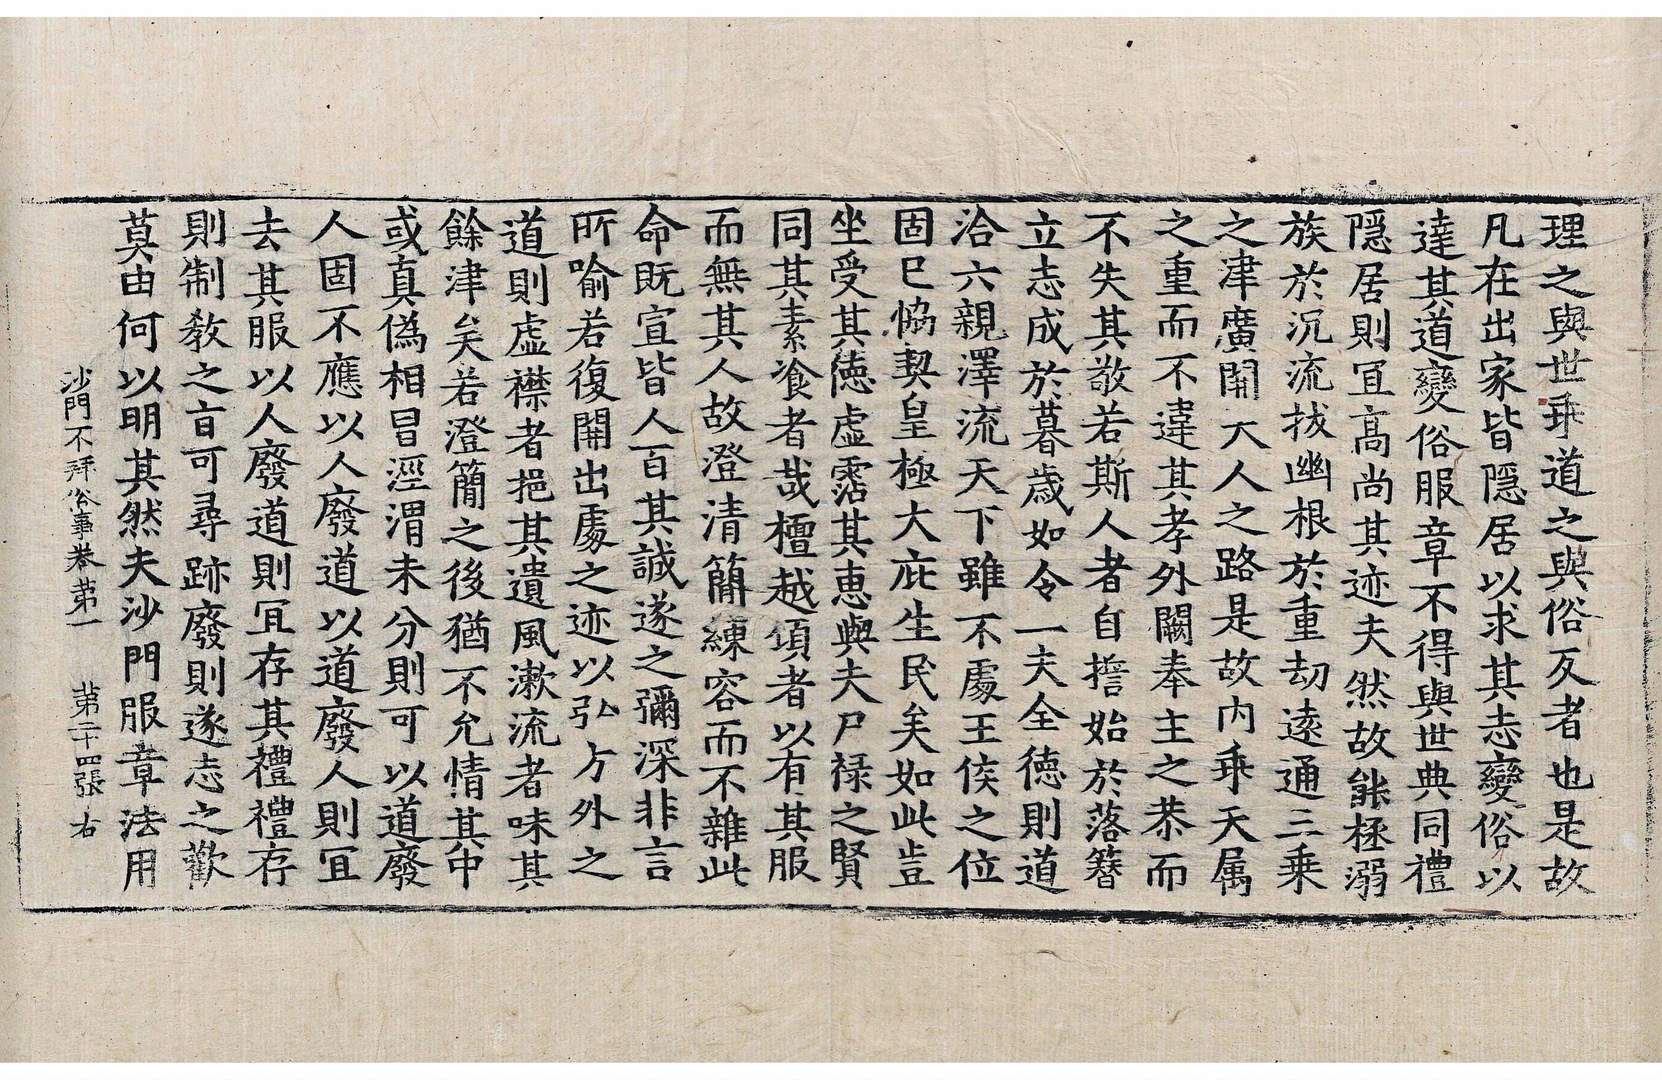 理之與世乖道之與俗反者也是故
凡在出家皆隱居以求其志變俗以
達其道變俗服章不得與世典同禮
隱居則冝高尚其迹夫然故能拯溺
族於沉流拔幽根於重劫遠通三乗
之津廣開天人之路是故内乖天属
之重而不違其孝外闕奉主之恭而
不失其敬若斯人者自擔始於落簪
立志成於暮歳如令一夫全徳則道
洽六親澤流天下雖不處王侯之位
固已恊契皇極大庇生民矣如此豈
坐受其徳虛霑其惠與夫尸禄之賢
同其素飡者㢤檀越頃者以有其服
而無其人故澄清簡練容而不雜此
命既宣皆人百其誠遂之彌深非言
所喻若復開出處之迹以弘方外之
道則虛襟者挹其遺風漱流者味其
餘津矣若澄簡之後猶不允情其中
或真偽相冒涇渭未分則可以道廢
人固不應以人廢道以道廢人則冝
去其服以人廢道則冝存其禮禮存
則制教之旨可尋跡廢則遂志之歡
莫由何以明其然夫沙門服章法用
沙門不拜俗事卷第一　第二十四張　右